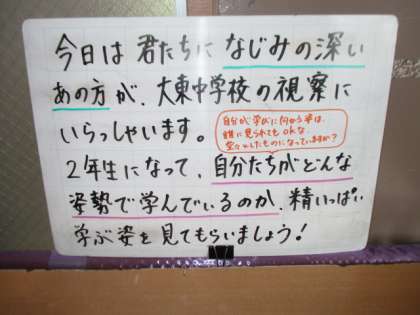 今日は君たちになじみの深い
あの方が、大東中学校の視察に
いらっしゃいます。
自分が学びに向かう姿は、
誰に見られてもokな、
堂々としたものになっていますか?
2年生になって、自分たちがどんな
姿勢で学んでいるのか、精いっぱい
学ぶ姿を見てもらいましょう!